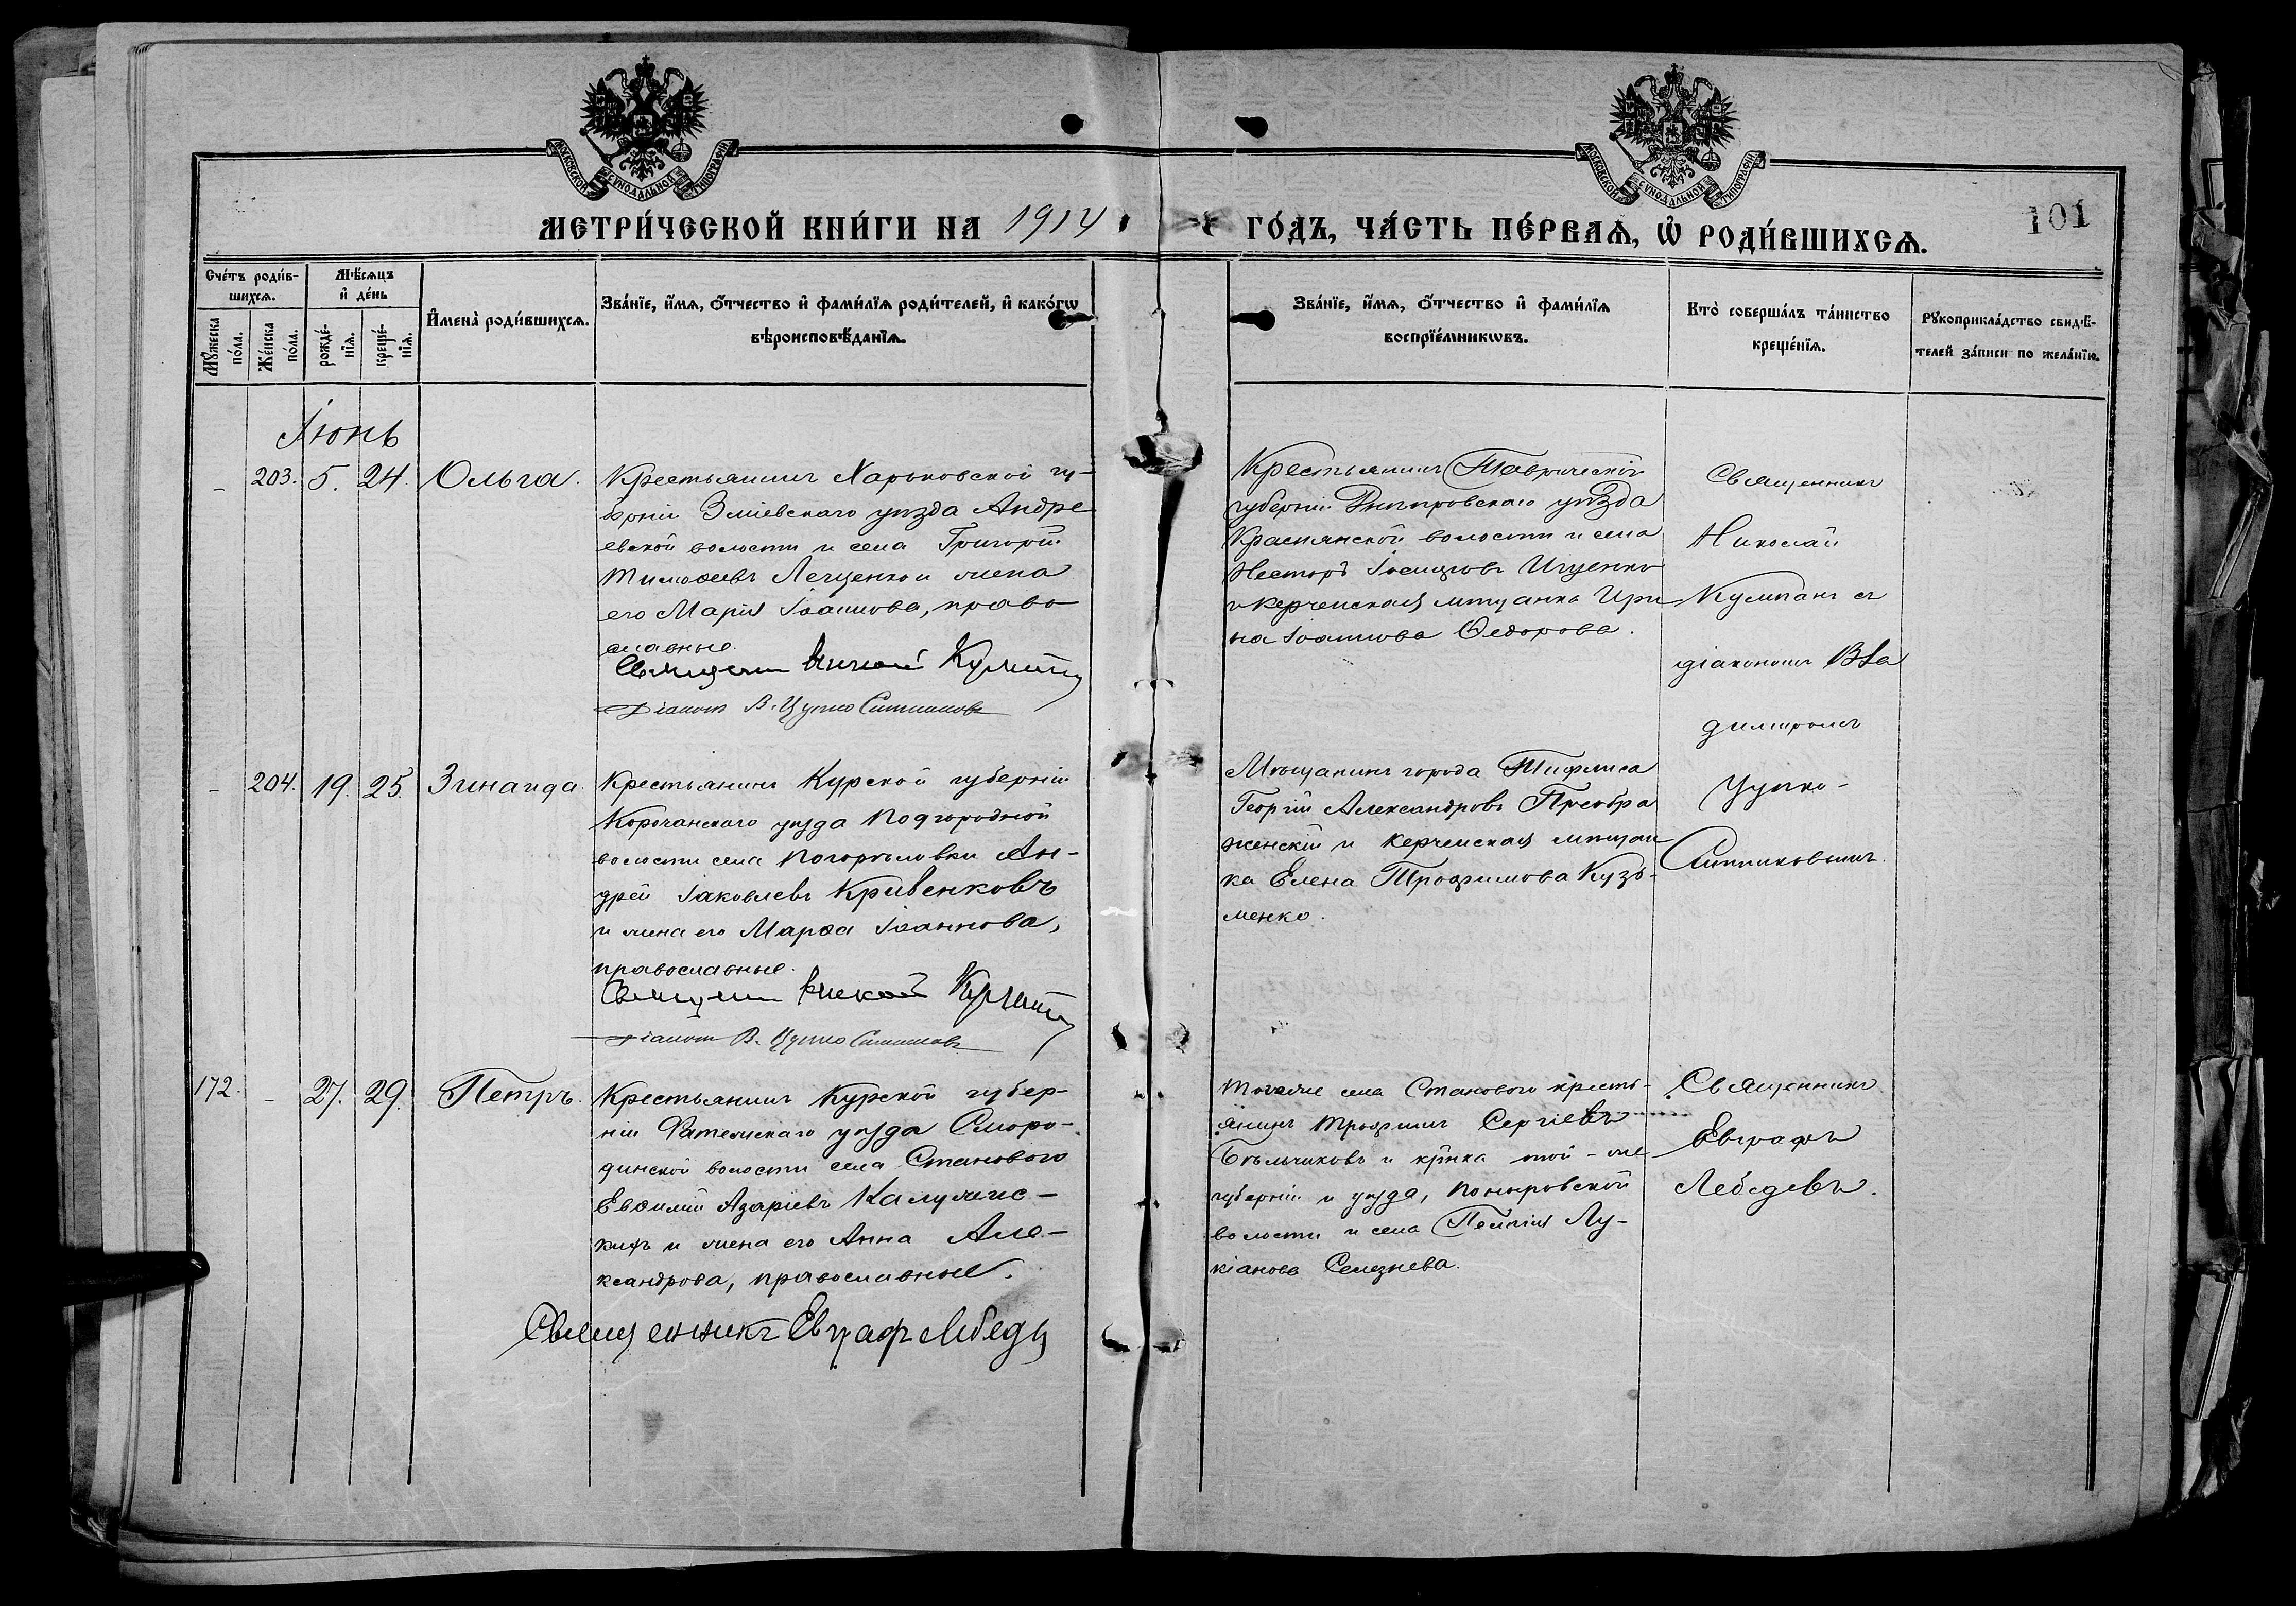 МОСКОВСКОЙ СѴНОДАЛЬНОЙ ТИПОГРАФІИ
МОСКОВСКОЙ СѴНОДАЛЬНОЙ ТИПОГРАФІИ
МЕТРИ́ЧЕСКОЙ КНИ́ГИ НА 1914
ГО́ДЪ, ЧА́СТЬ ПЕ́РВАѦ, Ѡ҆ РОДИ́ВШИХСѦ.
101
Сче́тъ роди́в-
шихсѧ.
Мꙋ́жеска
по́ла.
Же́нска
по́ла.
Мѣ́сѧцъ
и҆ де́нь
рожде́-
нїѧ.
креще́-
нїѧ.
И҆мена̀ роди́вшихсѧ.
Зва́нїе, и҆́мѧ, ѻ҆́тчество и҆ фами́лїѧ роди́телей, и҆ како́гѡ
вѣроисповѣ́данїѧ.
Зва́нїе, и҆́мѧ, ѻ҆́тчество и҆ фами́лїѧ
воспрїе́мникѡвъ.
Кто̀ соверша́лъ та́инство
креще́нїѧ.
Рꙋкоприкла́дство свидѣ́-
телей за́писи по жела́нїю.
Іюнь
- 203. 5. 24. Ольга.
Крестьянинъ Харьковской гу-
берніи Зміевскаго уѣзда Андре
евской волости и села Григорій
Тимоѳеевъ Лещенко и жена
его Марія Іоаннова, право
славные.
Священникъ Николай Кумпанъ
Діаконъ В. Цупко Ситниковъ
Крестьянинъ Таврической
губерніи Днѣпровскаго уѣзда
волости и села
Несторъ Іосифовъ Ищенко
и керченская мѣщанка Ири
на Іоаннова Ѳедорова.
Священникъ
Николай
Кумпанъ съ
діакономъ Вла
димиромъ
Цупко-
Ситниковымъ.
- 204. 19. 25. Зинаида.
Крестьянинъ Курской губерніи
Корочанскаго уѣзда Подгородной
волости села Погорѣловки Ан-
дрей Іаковлевъ Кривенковъ
и жена его Марѳа Іоаннова,
православные.
Священникъ Николай Кумпанъ
Діаконъ В. Цупко Ситниковъ
Мѣщанинъ города Тифлиса
Георгій Александровъ Преобра
женскій и керченская мѣщан
ка Елена Трофимова Кузь-
менко.
172. - 27. 29. Петръ.
Крестьянинъ Курской губер-
ніи Фатежскаго уѣзда Сморо-
динской волости села Станового
Евѳимій Азаріевъ Калужс-
кихъ и жена его Анна Але-
ксандрова, православные.
Священникъ Евграфъ Лебедевъ
Того же села Станового кресть-
янинъ Трофимъ Сергіевъ
Бѣльчиковъ и кр-нка той-же
губерніи и уѣзда, Поныровской
волости и села Лу-
кіанова Селезнева.
Священникъ
Евграфъ
Лебедевъ.